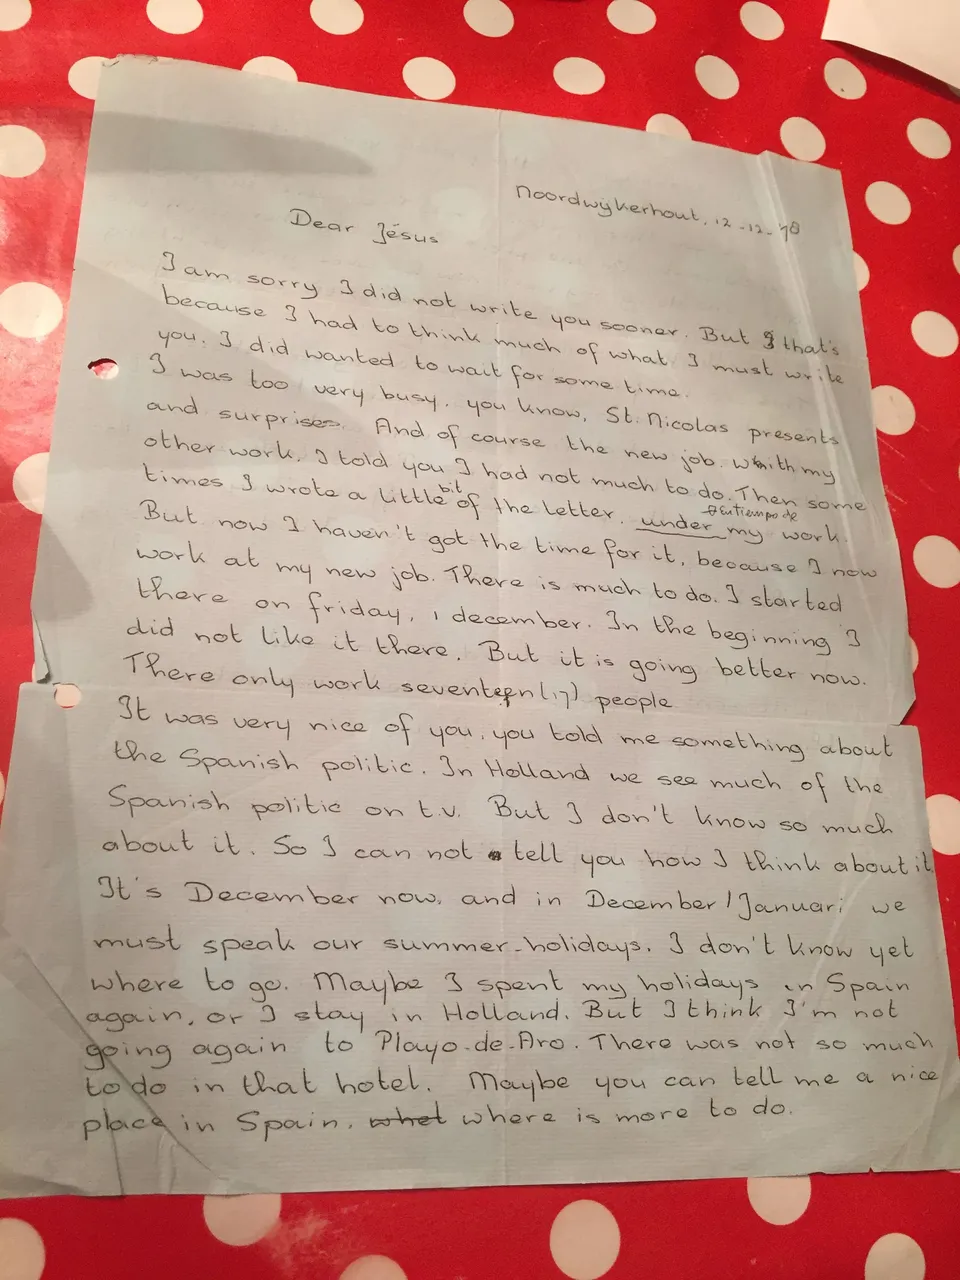 Noordwijkerhout, 12-12-78
Dear Jésus
I am sorry I did not write you sooner. But that's
because I had to think much of what I must write
you. I did wanted to wait for some time.
I was too very busy, you know, St. Nicolas presents
and surprises. And of course the new job. With my
other work, I told you I had not much to do. Then some
times I wrote a little bit of the letter, under my work.
en tiempo de
But now I haven't got the time for it, because I now
work at my new job. There is much to do. I started
there on friday, 1 december. In the beginning I
did not like it there. But it is going better now.
There only work seventeen (17) people
It was very nice of you, you told me something about
the Spanish politic. In Holland we see much of the
Spanish politic on t.v. But I don't know so much
about it. So I can not tell you how I think about it.
It's December now, and in December/Januari we
must speak our summer-holidays. I don't know yet
where to go. Maybe I spent my holidays in Spain
again, or I stay in Holland. But I think I'm not
going again to Playo-de-Aro. There was not so much
to do in that hotel. Maybe you can tell me a nice
place in Spain, what where is more to do.